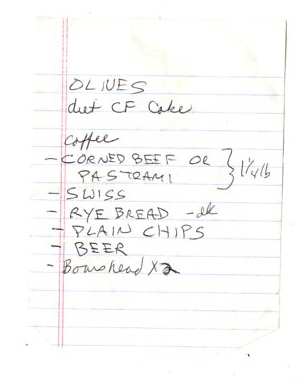 OLIVES
diet CF Coke
coffee
- CORNED BEEF OR
PASTRAMI } 1 1/4 lb
- SWISS
- RYE BREAD - dk
- PLAIN CHIPS
- BEER
- Boarshead X2